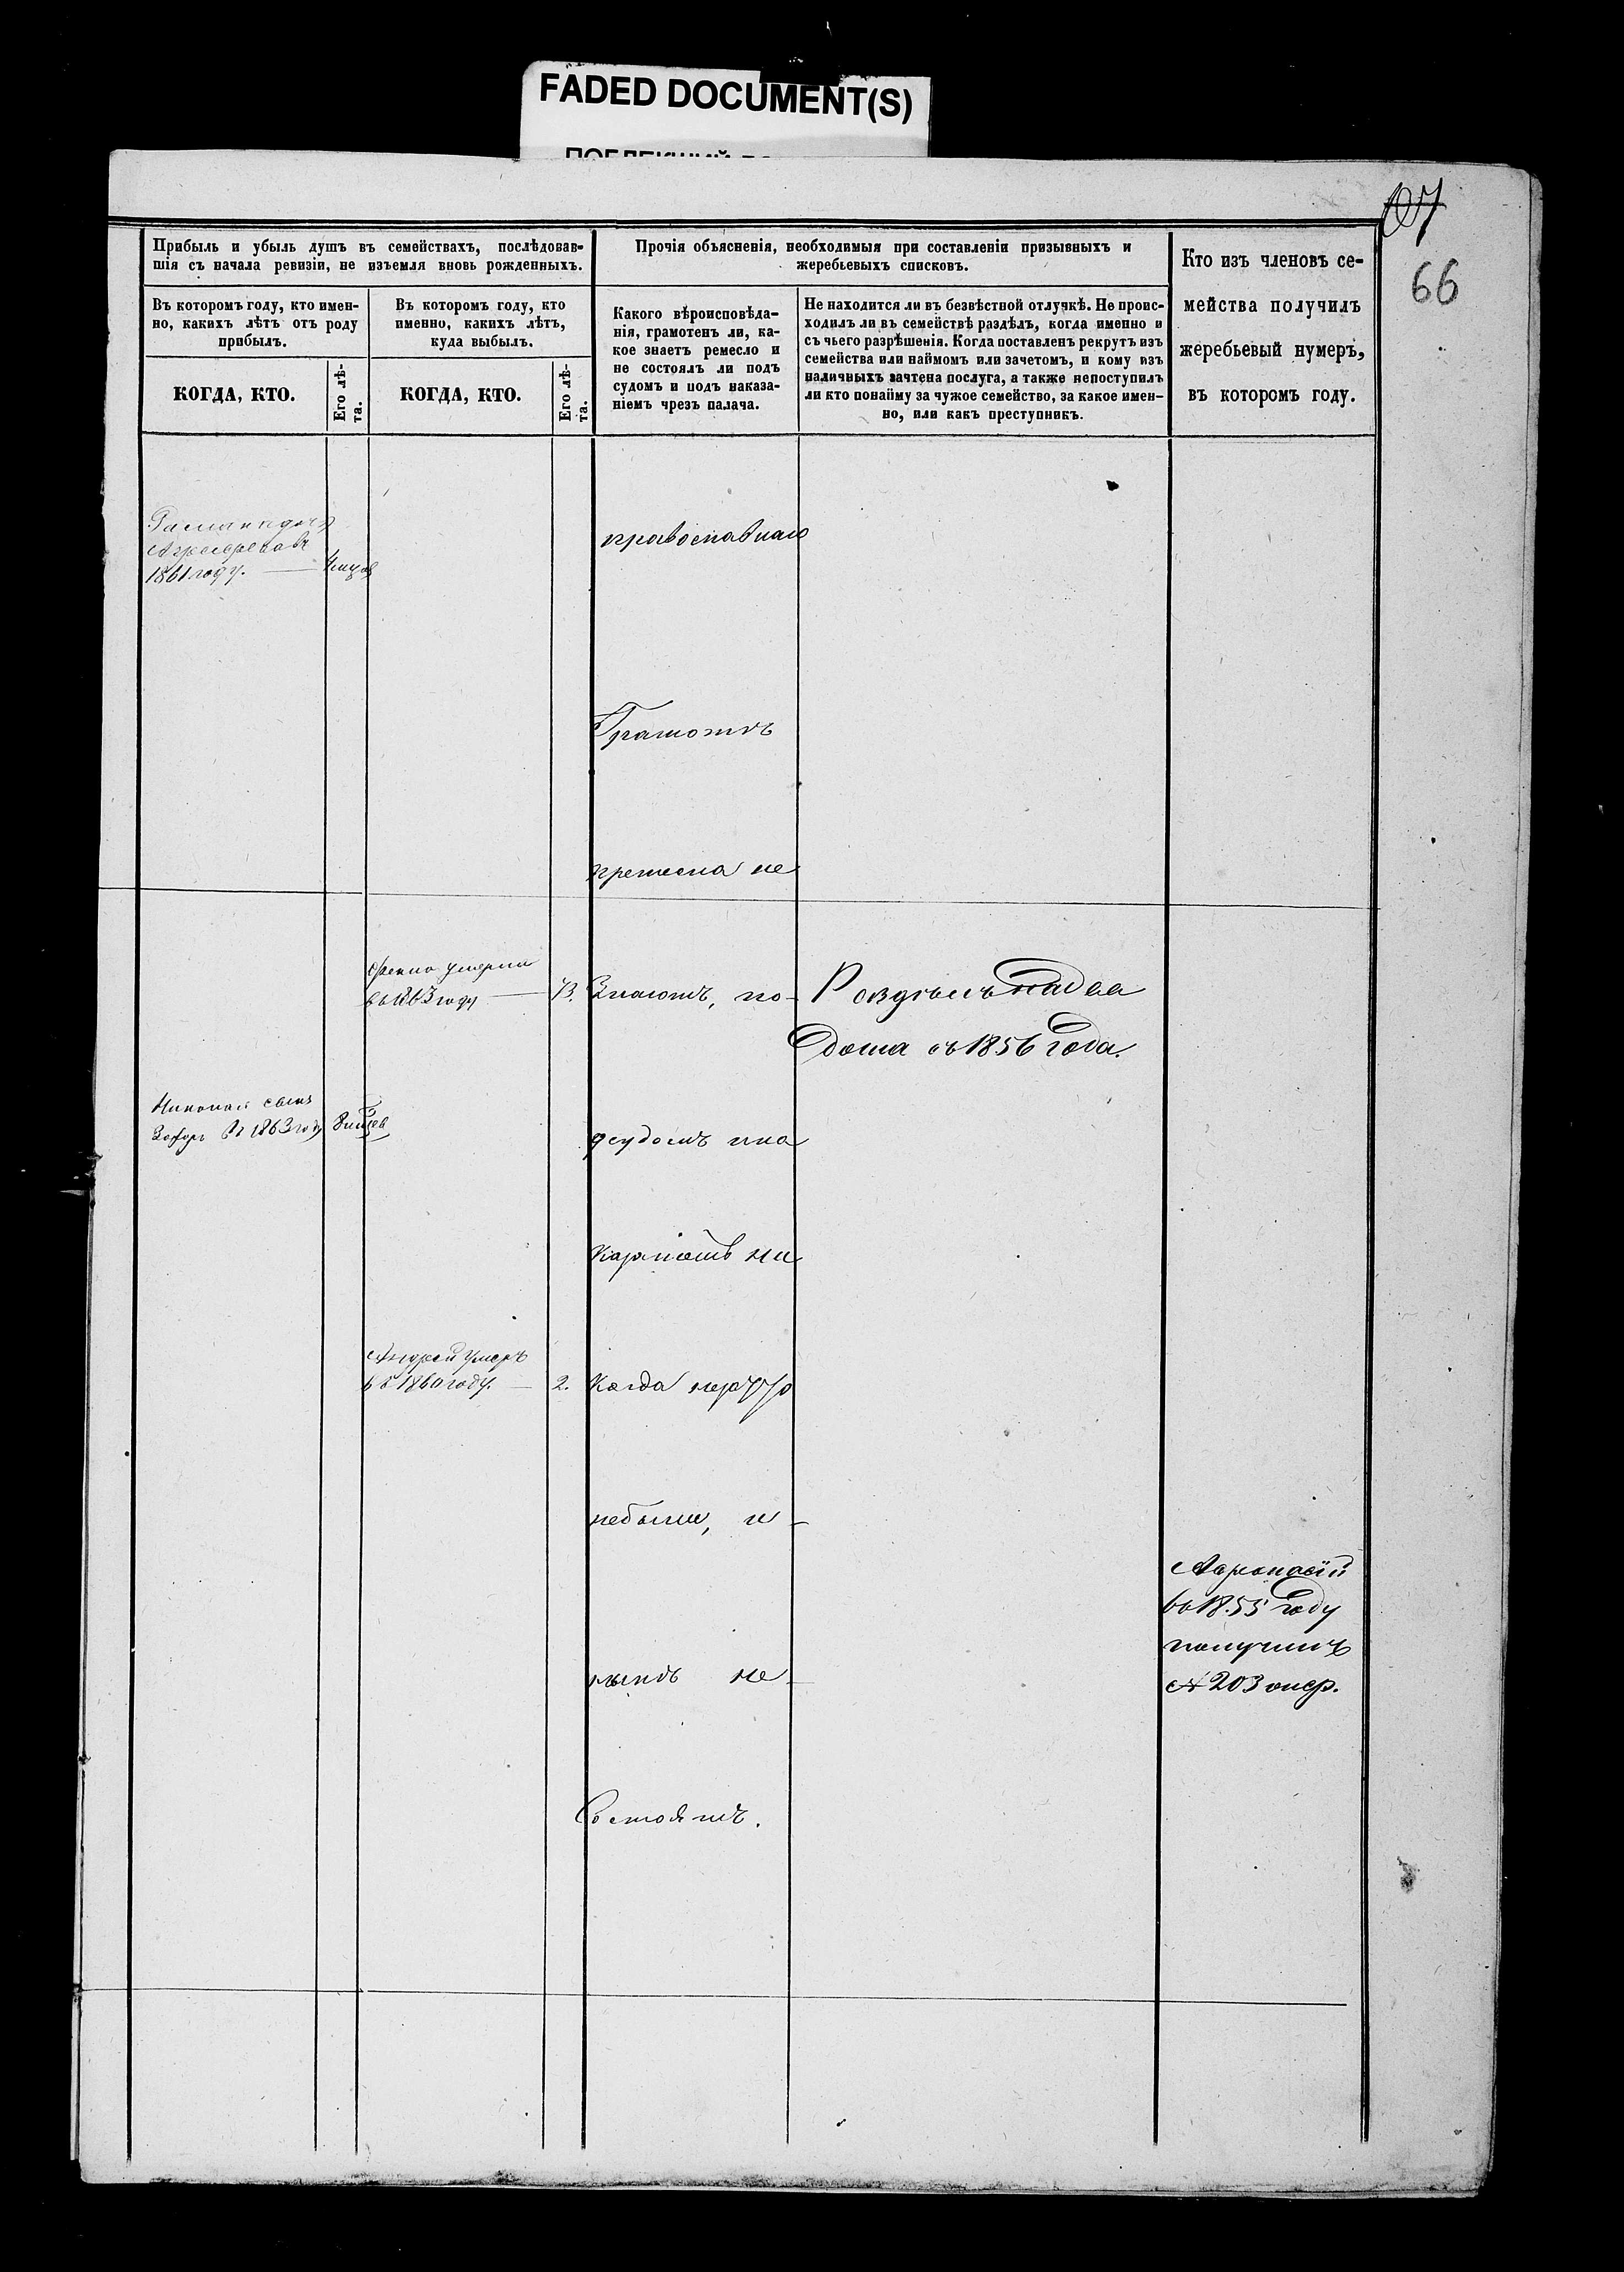 FADED DOCUMENT(S)
107
66
Прибыль и убыль душъ въ семействахъ, послѣдовав-
шія съ начала ревизіи, не изъемля вновь рожденныхъ.
Прочія объясненія, необходимыя при составленіи призывныхъ и
жеребьевыхъ списковъ.
Кто изъ членовъ се-
мейства получилъ
жеребьевый нумеръ,
въ которомъ году.
Въ которомъ году, кто имен-
но, какихъ лѣтъ отъ роду
прибылъ.
Въ которомъ году, кто
именно, какихъ лѣтъ,
куда выбылъ.
Какого вѣроисповѣда-
нія, грамотенъ ли, ка-
кое знаетъ ремесло и
не состоялъ ли подъ
судомъ и подъ наказа-
ніемъ чрезъ палача.
Не находится ли въ безвѣстной отлучкѣ. Не проис-
ходилъ ли въ семействѣ раздѣлъ, когда именно и
съ чьего разрѣшенія. Когда поставленъ рекрутъ изъ
семейства или наймомъ или зачетомъ, и кому изъ
наличныхъ зачтена послуга, а также непоступилъ
ли кто понайму за чужое семейство, за какое имен-
но, или какъ преступникъ.
КОГДА, КТО.
Его лѣ-
та.
КОГДА, КТО.
Его лѣ-
та.
1861 году.
православнаго
Грамотѣ
ремесла не
умерла
въ 1863 году
Знаютъ, по-
Раздѣлъ на два
дома съ 1856 года.
Николай сынъ
1863 году
дсудомъ ина
Андрей умеръ
въ 1860 году. — 2.
Когда
небыли, и
нынѣ не-
Состоятъ.
въ 1855 году
получилъ
№ 203